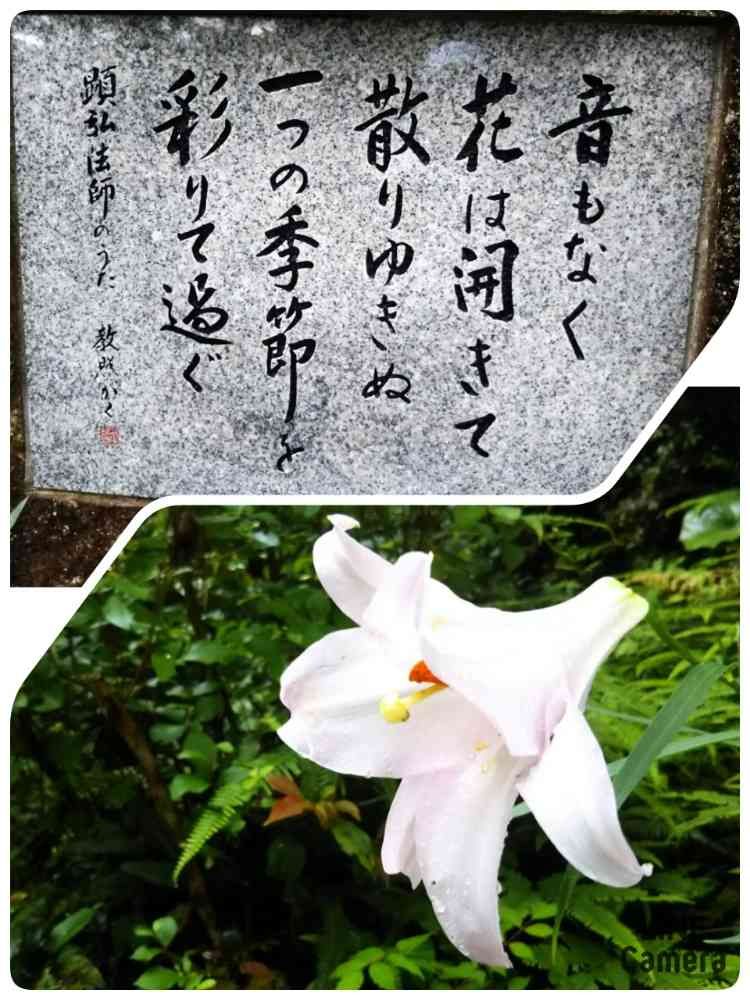 音もなく
花は開きて
散りゆきぬ
一つの季節を
彩りて過ぐ
顕弘法師のうた
かく
Camera